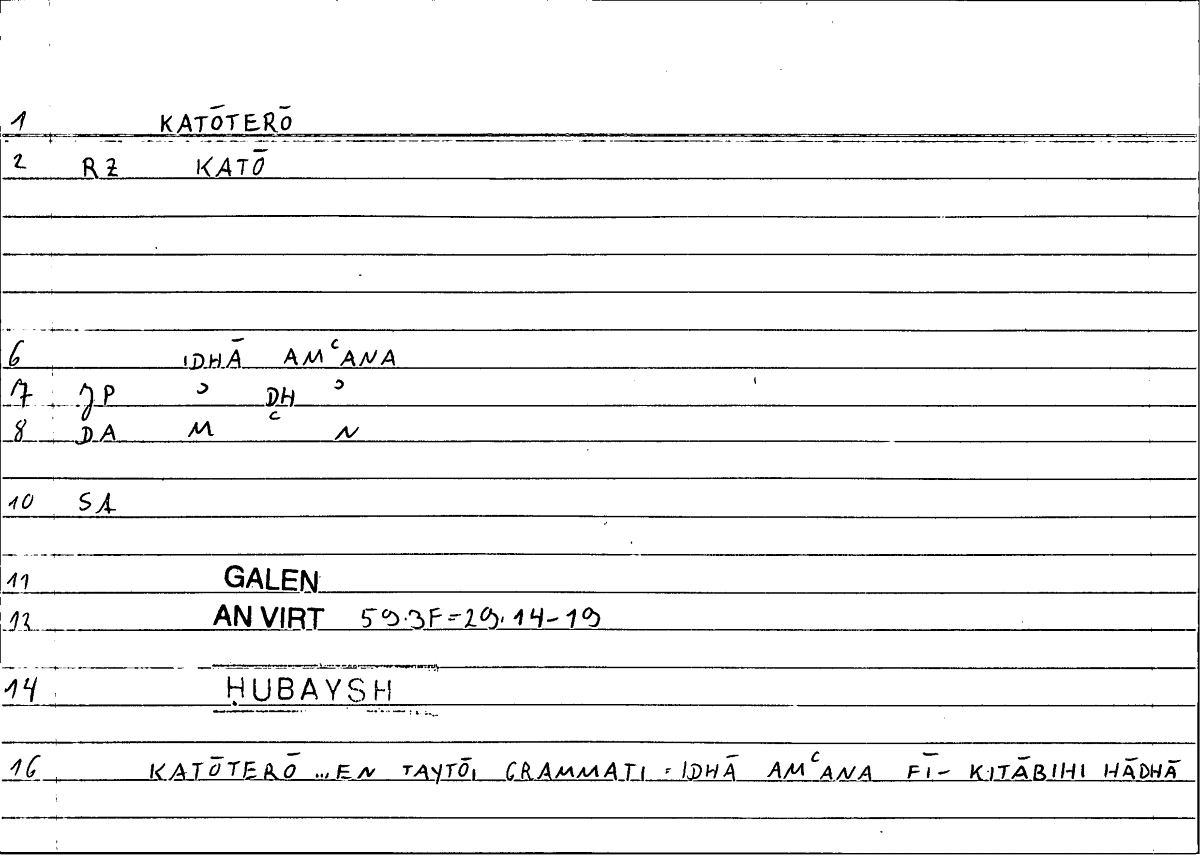 1 KATŌTERŌ
2 RZ KATŌ
6 IDHĀ AMʿANA
7 JP ʾ DH ʾ
8 DA M ʿ N
10 SA
11 GALEN
12 AN VIRT 59.3F=29.14-19
14 ḤUBAYSH
16 KATŌTERŌ ... EN TAYTŌI GRAMMATI = IDHĀ AMʿANA FĪ- KITĀBIHI HĀDHĀ